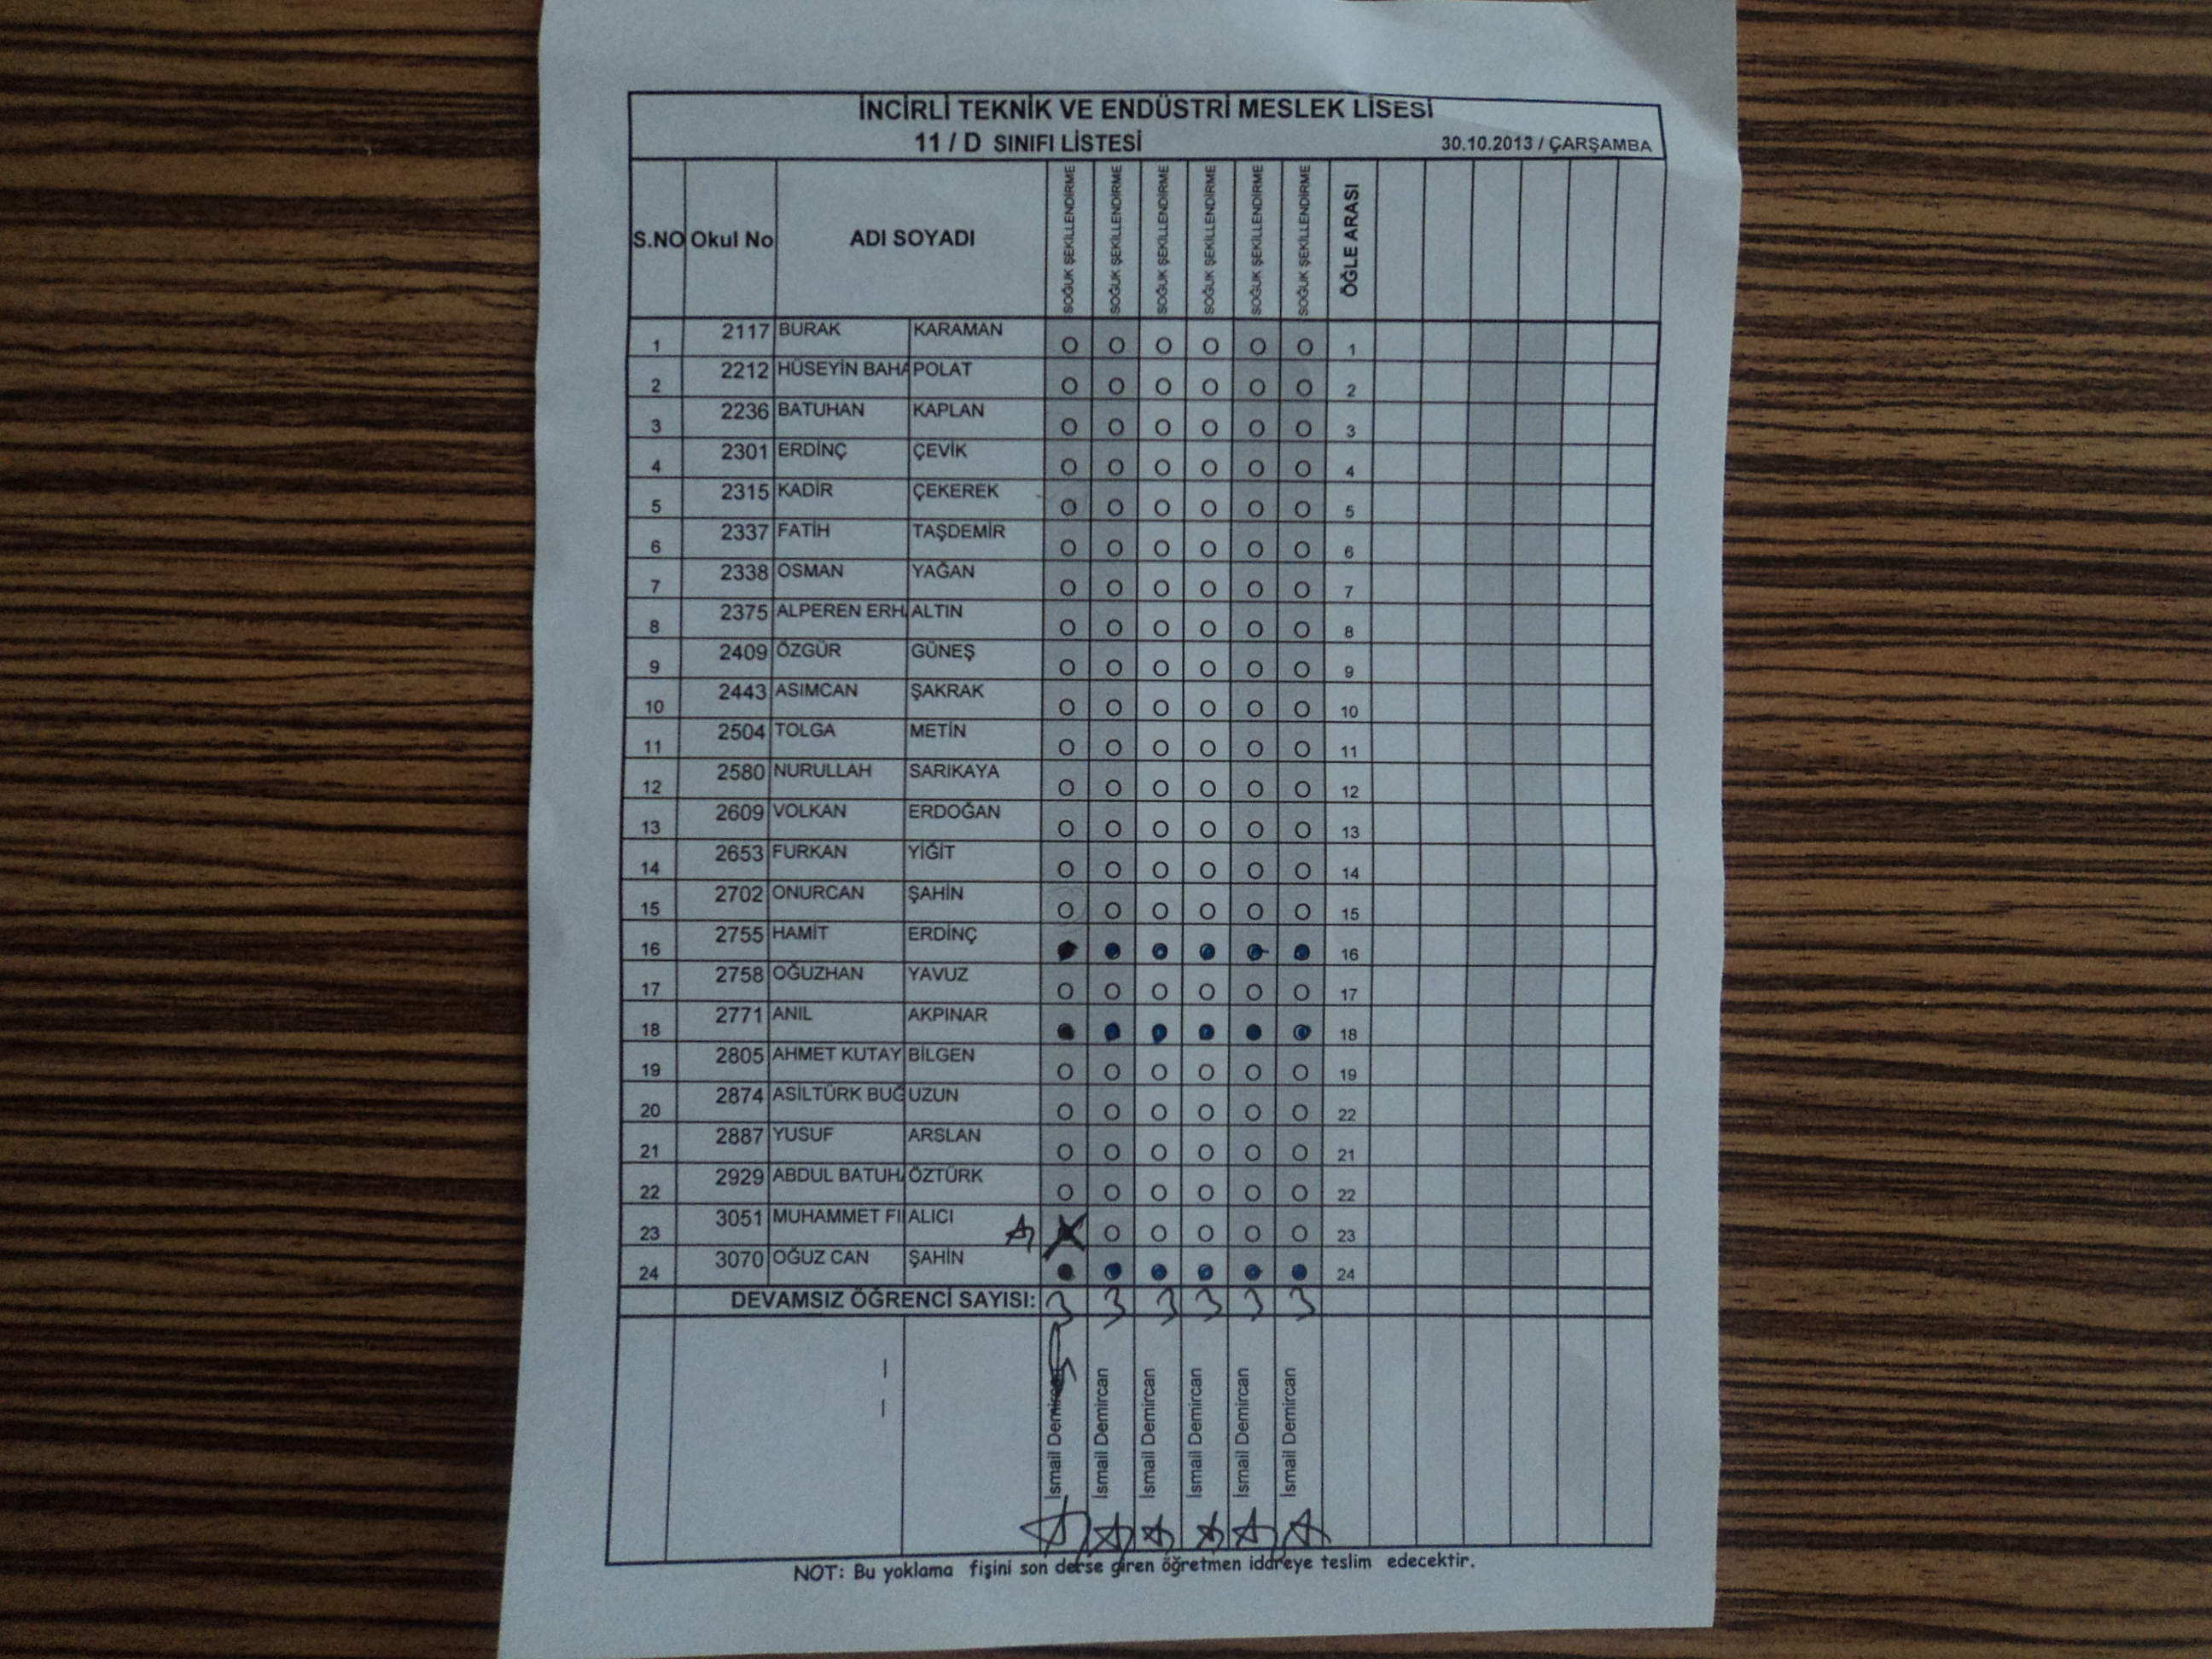 İNCİRLİ TEKNİK VE ENDÜSTRİ MESLEK LİSESİ
11 / D SINIFI LİSTESİ 30.10.2013 / ÇARŞAMBA
S.NO Okul No ADI SOYADI SOĞUK ŞEKİLLENDİRME SOĞUK ŞEKİLLENDİRME SOĞUK ŞEKİLLENDİRME SOĞUK ŞEKİLLENDİRME SOĞUK ŞEKİLLENDİRME SOĞUK ŞEKİLLENDİRME ÖĞLE ARASI
1 2117 BURAK KARAMAN O O O O O O 1
2 2212 HÜSEYİN BAHA POLAT O O O O O O 2
3 2236 BATUHAN KAPLAN O O O O O O 3
4 2301 ERDİNÇ ÇEVİK O O O O O O 4
5 2315 KADİR ÇEKEREK O O O O O O 5
6 2337 FATİH TAŞDEMİR O O O O O O 6
7 2338 OSMAN YAĞAN O O O O O O 7
8 2375 ALPEREN ERHA ALTIN O O O O O O 8
9 2409 ÖZGÜR GÜNEŞ O O O O O O 9
10 2443 ASIMCAN ŞAKRAK O O O O O O 10
11 2504 TOLGA METİN O O O O O O 11
12 2580 NURULLAH SARIKAYA O O O O O O 12
13 2609 VOLKAN ERDOĞAN O O O O O O 13
14 2653 FURKAN YİĞİT O O O O O O 14
15 2702 ONURCAN ŞAHİN O O O O O O 15
16 2755 HAMİT ERDİNÇ 16
17 2758 OĞUZHAN YAVUZ O O O O O O 17
18 2771 ANIL AKPINAR 18
19 2805 AHMET KUTAY BİLGEN O O O O O O 19
20 2874 ASİLTÜRK BUĞ UZUN O O O O O O 22
21 2887 YUSUF ARSLAN O O O O O O 21
22 2929 ABDUL BATUHA ÖZTÜRK O O O O O O 22
23 3051 MUHAMMET FI ALICI O O O O O 23
24 3070 OĞUZ CAN ŞAHİN 24
DEVAMSIZ ÖĞRENCİ SAYISI: 3 3 3 3 3 3
İsmail Demircan İsmail Demircan İsmail Demircan İsmail Demircan İsmail Demircan İsmail Demircan
NOT: Bu yoklama fişini son derse giren öğretmen idareye teslim edecektir.